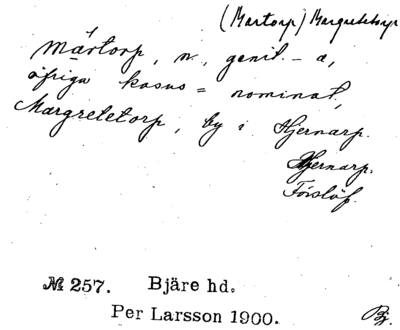 (Mårtorp) Margretetorp
Mårtorp, n., genit. - a,
öfriga kasus = nominat,
Margretetorp, by i Hjernarp.
Hjernarp.
Förslöf.
№ 257. Bjäre hd.
Per Larsson 1900.
Bj.